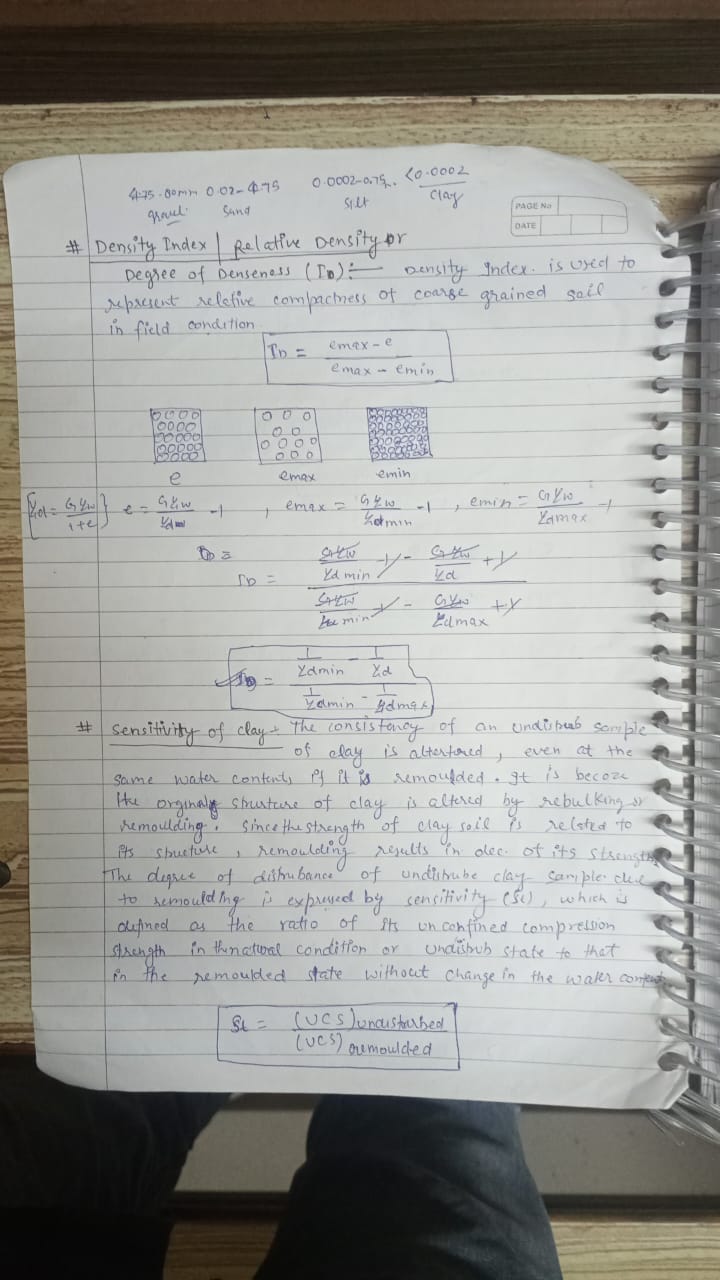 4.75-80mm 0.02-4.75 0.0002-0.75 <0.0002
gravel Sand Silt Clay
PAGE No
DATE
# Density Index | Relative Density or
Degree of Denseness (ID):- Density Index. is used to
represent relative compactness of coarse grained soil
in field condition
ID = emax - e / emax - emin
e emax emin
{γd = Gγw / 1+e} e = Gγw / γd - 1 , emax = Gγw / γdmin - 1 , emin = Gγw / γdmax - 1
ID =
ID = Gγw / γdmin - 1 - Gγw / γd + 1 / Gγw / γdmin - 1 - Gγw / γdmax + 1
ID = 1/γdmin - 1/γd / 1/γdmin - 1/γdmax
# Sensitivity of clay → The consistency of an undistrub sample
of clay is altertered, even at the
same water contents if it is remoulded. It is becoze
the orginaly sturture of clay is altered by rebulking or
remoulding. Since the strength of clay soil is related to
its structure, remoulding results in dec. of its strength
The degree of distrubance of undistrube clay sample due
to remoulding is expressed by sensitivity (St), which is
defined as the ratio of its unconfined compression
strength in thnatural condition or undistrub state to that
in the remoulded state without change in the water content
St = (UCS)undisturbed / (UCS) remoulded